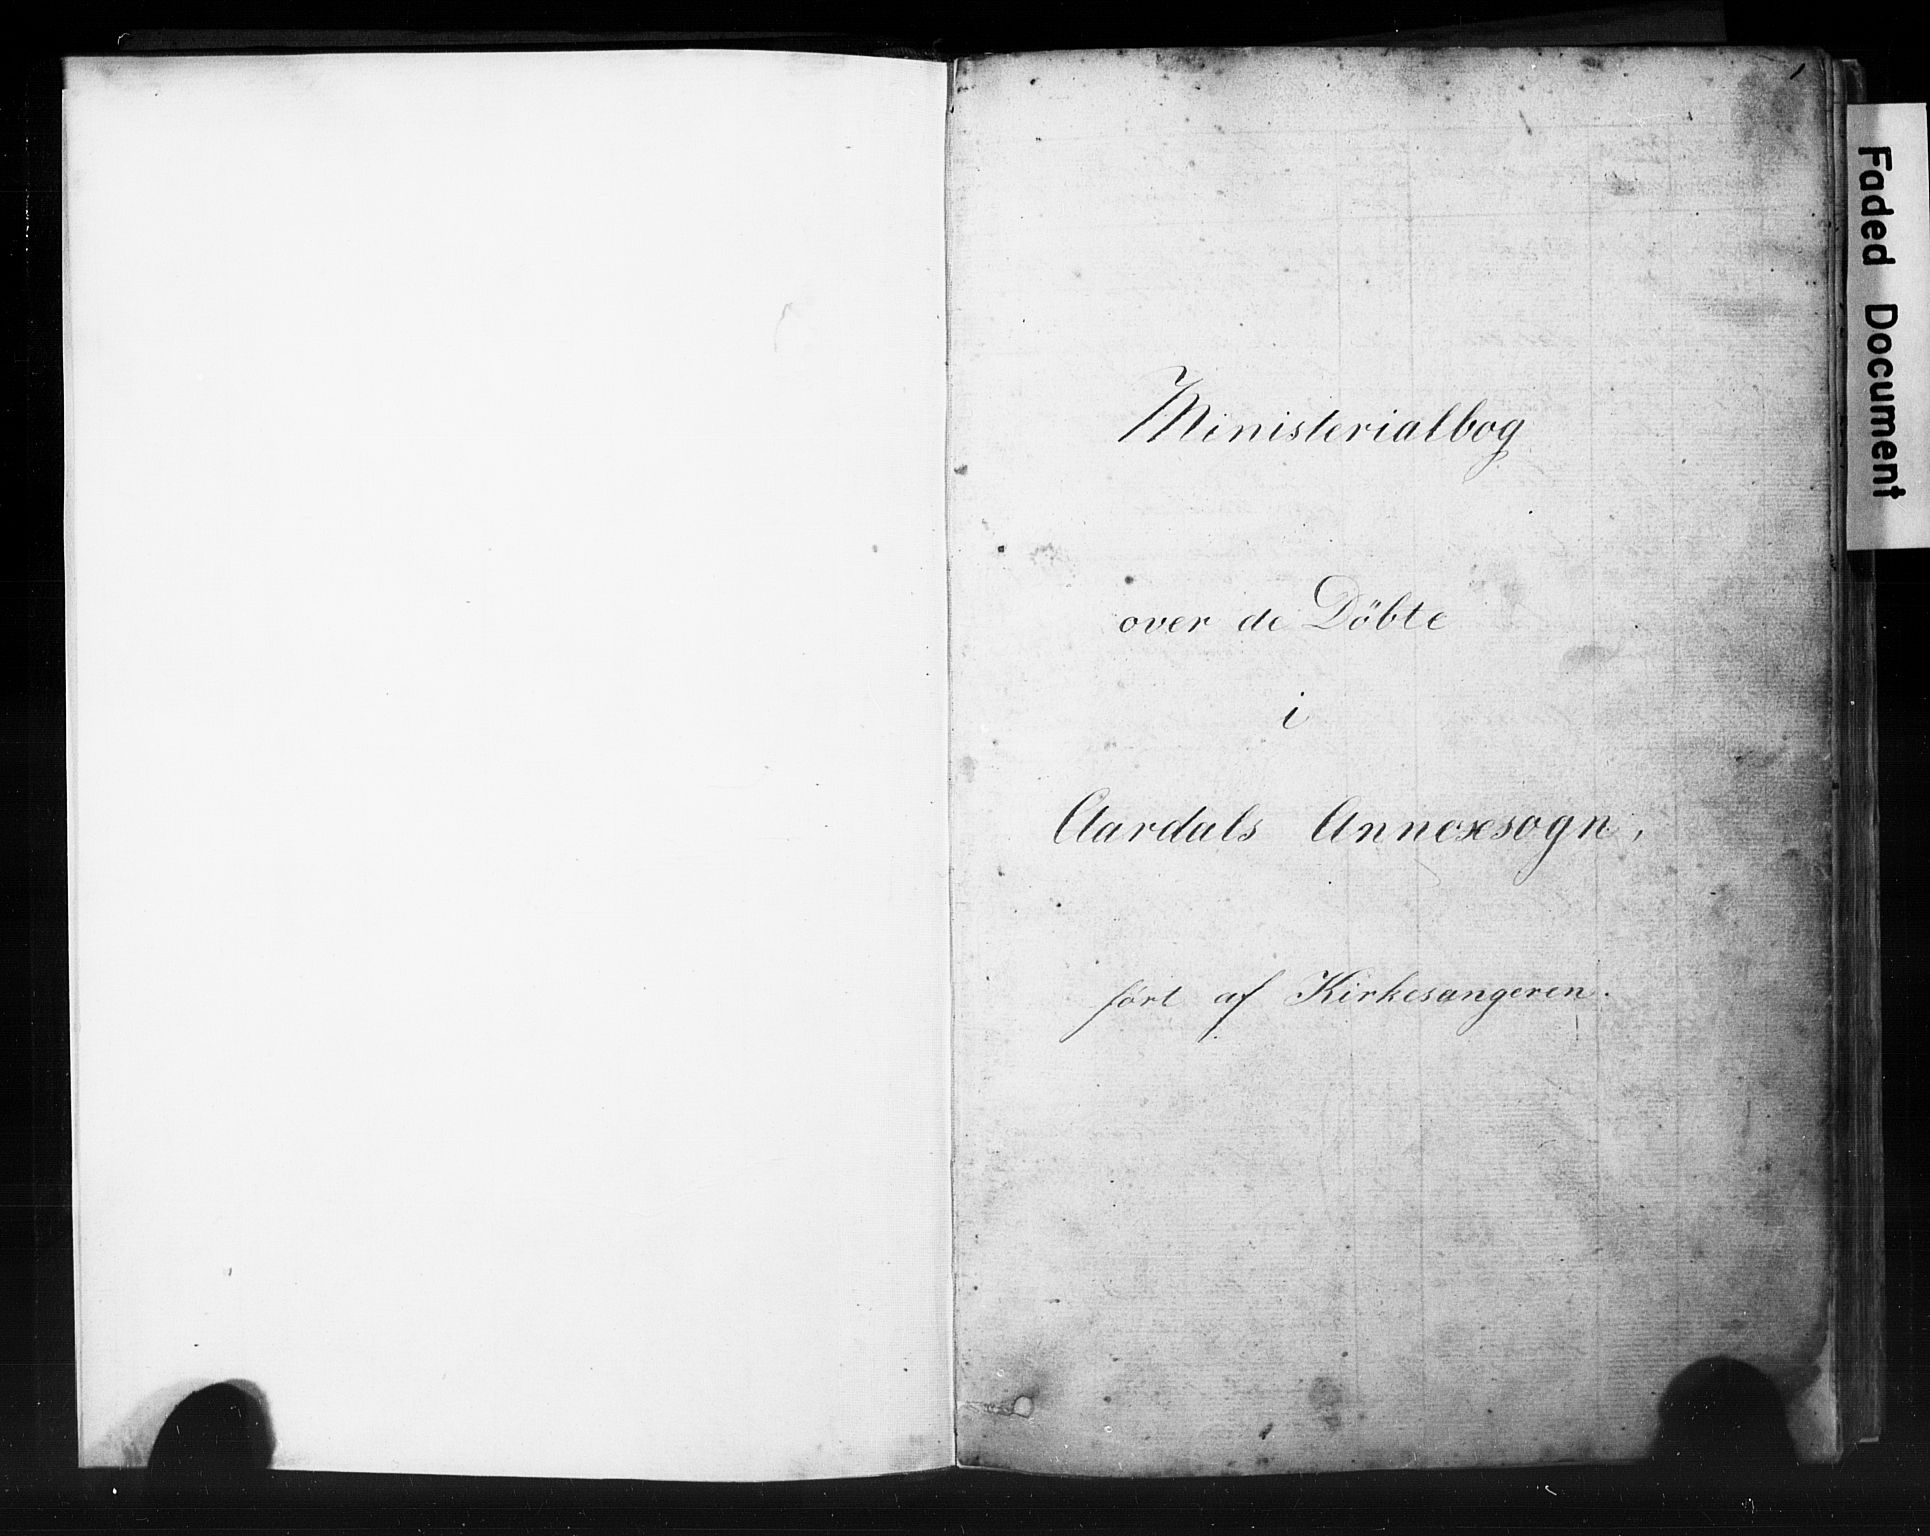 1
Ministerialbog
over de Döbte
i
Aardals Annexsogn,
ført af Kirkesangeren.
Faded Document